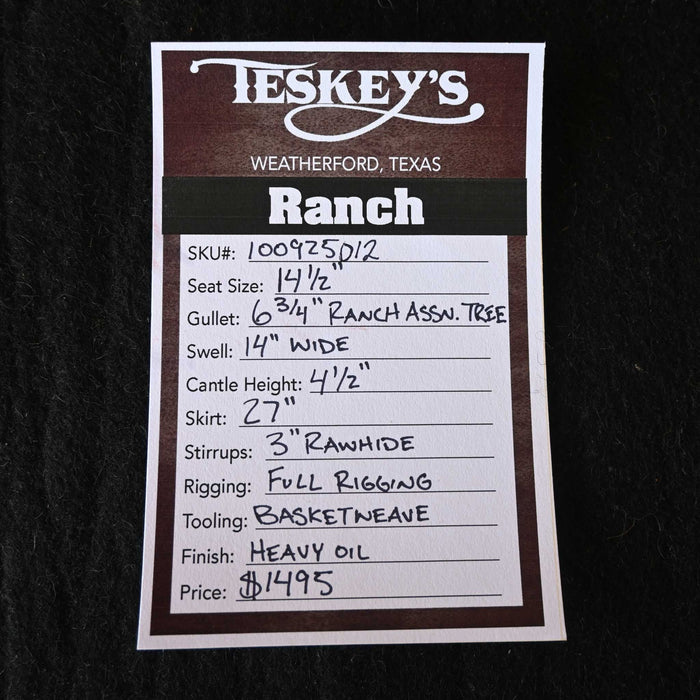 TESKEY'S
WEATHERFORD, TEXAS
Ranch
SKU#: 100925D12
Seat Size: 14 1/2"
Gullet: 6 3/4" RANCH ASSN. TREE
Swell: 14" WIDE
Cantle Height: 4 1/2"
Skirt: 27"
Stirrups: 3" RAWHIDE
Rigging: FULL RIGGING
Tooling: BASKETWEAVE
Finish: HEAVY OIL
Price: $1495